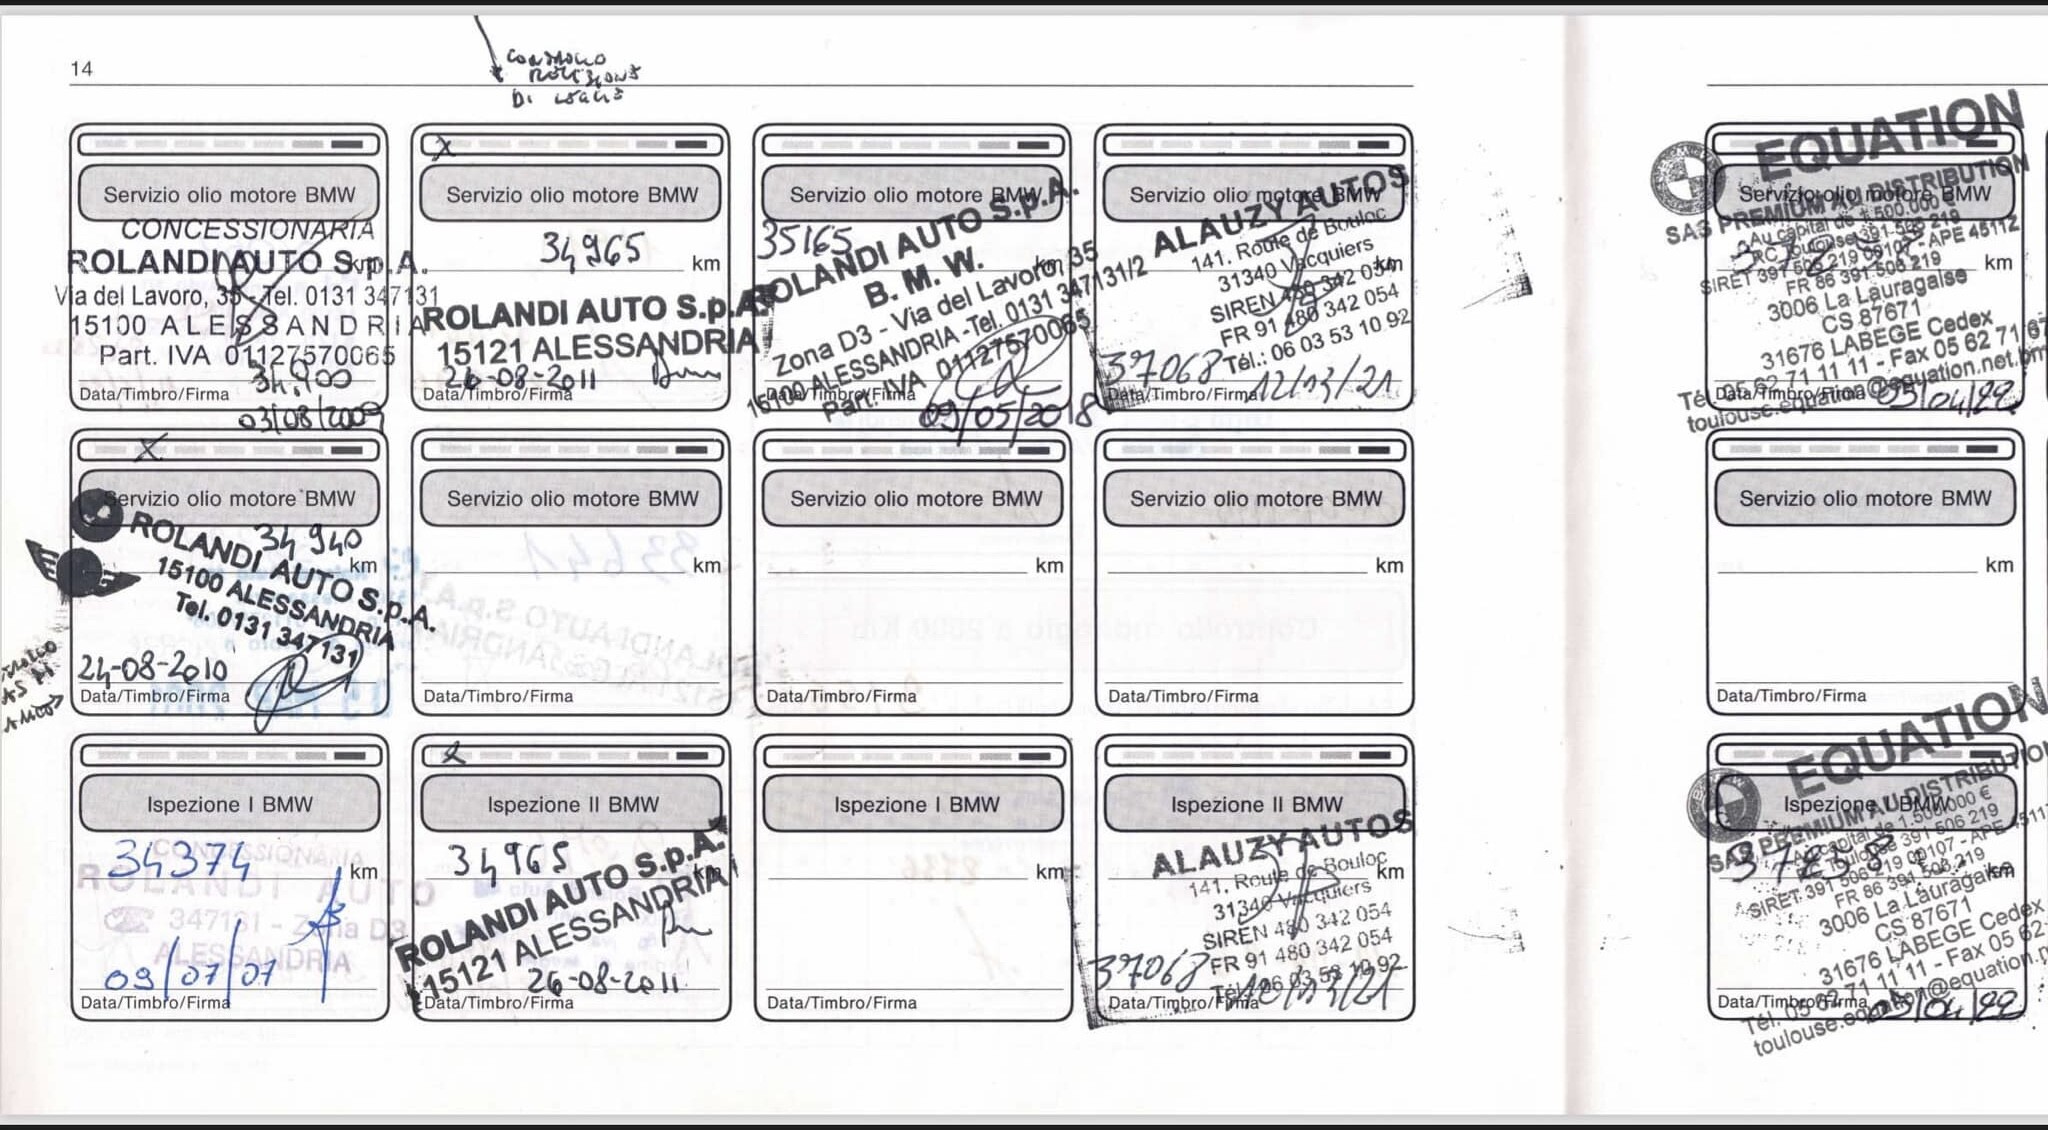 14
CONTROLLO
DI
Servizio olio motore BMW
CONCESSIONARIA
ROLANDI AUTO S.p.A.
km
Via del Lavoro, 35 - Tel. 0131 347131
15100 ALESSANDRIA
Part. IVA 01127570065
34.900
Data/Timbro/Firma
03/08/2009
Servizio olio motore BMW
34965
km
ROLANDI AUTO S.p.A.
15121 ALESSANDRIA
26-08-2011
Data/Timbro/Firma
Servizio olio motore BMW
35165
km
ROLANDI AUTO S.p.A.
B. M. W.
Zona D3 - Via del Lavoro, 35
15100 ALESSANDRIA - Tel. 0131 347131/2
Part. IVA 01127570065
Data/Timbro/Firma
09/05/2018
Servizio olio motore BMW
ALAUZY AUTOS
141, Route de Bouloc
31340 Vacquiers
km
SIREN 480 342 054
FR 91 480 342 054
Tél.: 06 03 53 10 92
37068
Data/Timbro/Firma
12/03/21
EQUATION
Servizio olio motore BMW
SAS PREMIUM AU DISTRIBUTION
Au capital de 1.500.000 €
RC Toulouse 391 506 219
SIRET 391 506 219 00107 - APE 4511Z
FR 86 391 506 219
km
3006 La Lauragaise
CS 87671
31676 LABEGE Cedex
Tél. 05 62 71 11 11 - Fax 05 62 71 67
toulouse.equation@equation.net.bm
Data/Timbro/Firma
05/04/22
Servizio olio motore BMW
34940
km
ROLANDI AUTO S.p.A.
15100 ALESSANDRIA
Tel. 0131 347131
24-08-2010
Data/Timbro/Firma
Servizio olio motore BMW
km
Data/Timbro/Firma
Servizio olio motore BMW
km
Data/Timbro/Firma
Servizio olio motore BMW
km
Data/Timbro/Firma
Servizio olio motore BMW
km
Data/Timbro/Firma
Ispezione I BMW
34374
km
CONCESSIONARIA
ROLANDI AUTO
347131 - Zona D3
ALESSANDRIA
09/07/07
Data/Timbro/Firma
Ispezione II BMW
34965
km
ROLANDI AUTO S.p.A.
15121 ALESSANDRIA
26-08-2011
Data/Timbro/Firma
Ispezione I BMW
km
Data/Timbro/Firma
Ispezione II BMW
ALAUZY AUTOS
141, Route de Bouloc
km
31340 Vacquiers
SIREN 480 342 054
FR 91 480 342 054
Tél.: 06 03 53 10 92
37068
12/03/21
Data/Timbro/Firma
EQUATION
Ispezione I BMW
SAS PREMIUM AU DISTRIBUTION
Au capital de 1.500.000 €
RC Toulouse 391 506 219
SIRET 391 506 219 00107 - APE 4511
FR 86 391 506 219
km
3006 La Lauragaise
CS 87671
31676 LABEGE Cedex
Tél. 05 62 71 11 11 - Fax 05 62
toulouse.equation@equation.
Data/Timbro/Firma
05/04/22